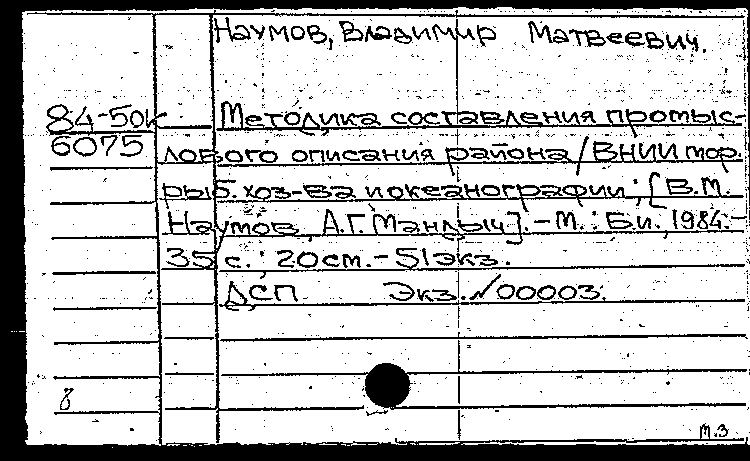 Наумов, Владимир Матвеевич.
84-50к Методика составления промыс-
6075 лового описания района / ВНИИ мор.
рыб. хоз-ва и океанографии; [В.М.
Наумов, А.Г. Мандыч]. - М. : Б.и., 1984. -
35 с. ; 20 см. - 51 экз.
ДСП Экз. №00003.
8
м.з